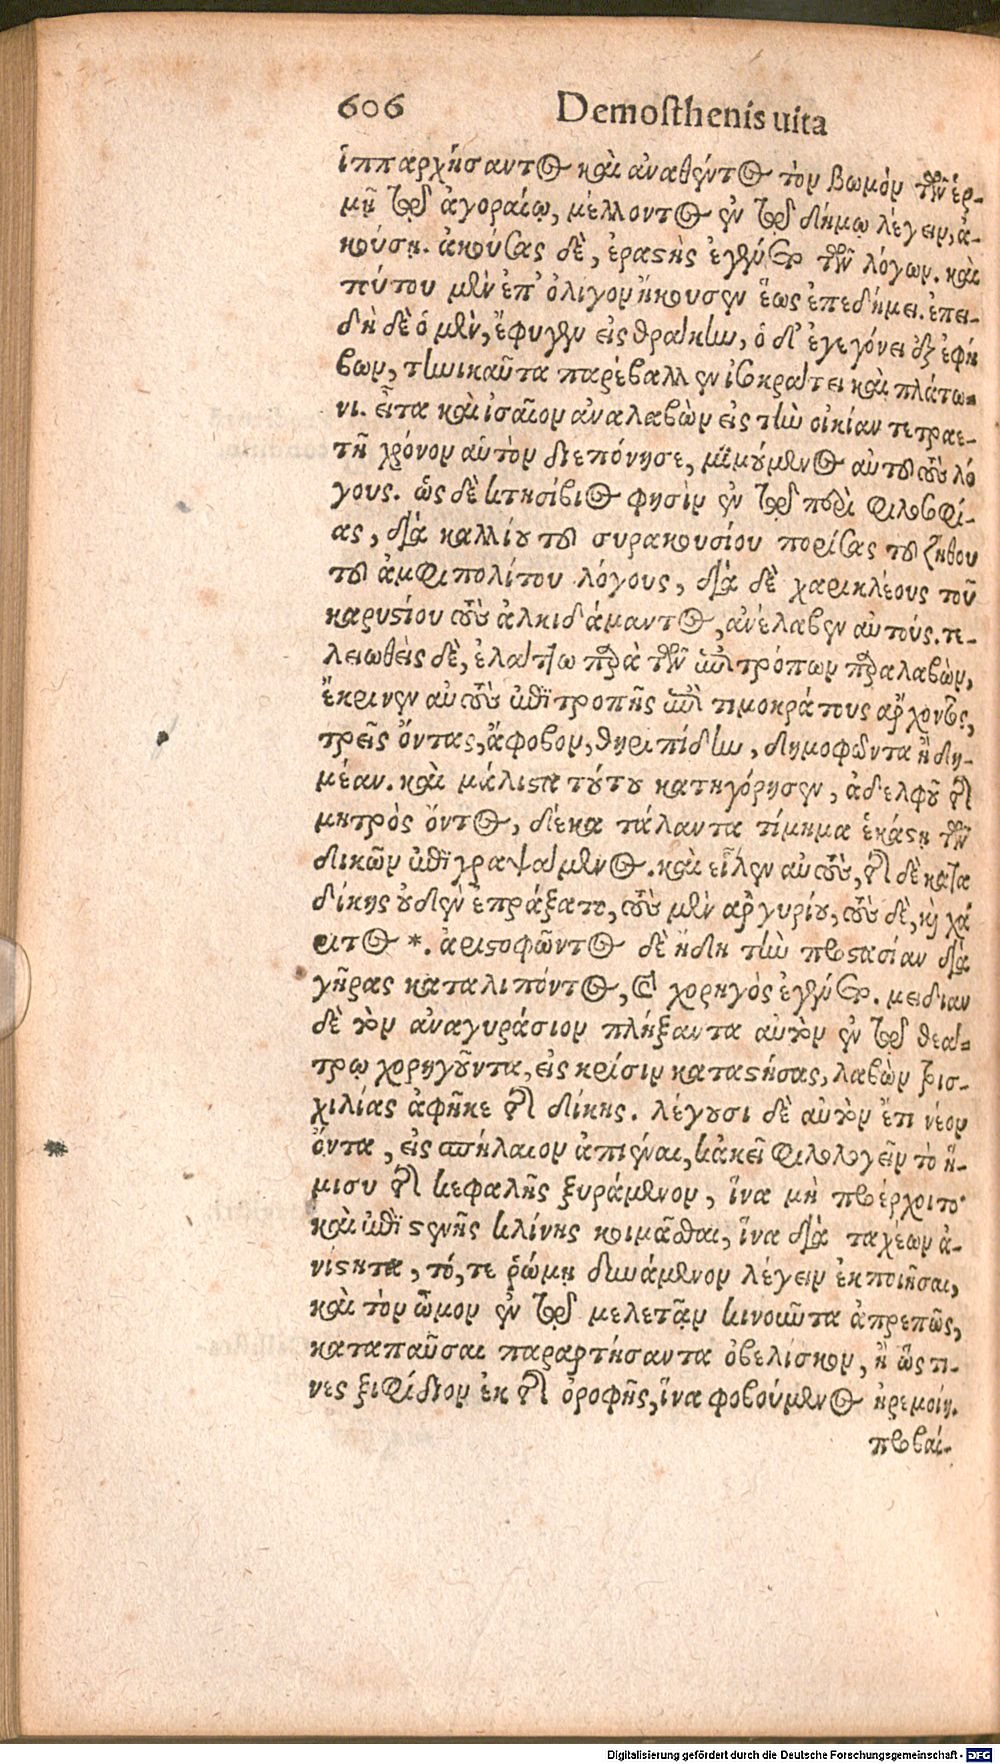 606 Demosthenis uita
ἱππαρχήσαντος καὶ ἀναθέντος τὸν βωμὸν τῶν ἑρ-
μῇ τῷ ἀγοραίῳ, μέλλοντος ἐν τῷ δήμῳ λέγειν, ἀ-
κούσῃ. ἀκούσας δὲ, ἐραστὴς ἐγένετο τῶν λόγων. καὶ
τούτου μὲν ἐπ' ὀλίγον ἤκουσεν ἕως ἐπεδήμει. ἐπει-
δὴ δὲ ὁ μὲν, ἔφυγεν εἰς θρᾴκην, ὁ δ' ἐγεγόνει ἐξ ἐφή
βων, τηνικαῦτα παρέβαλλεν ἰσοκράτει καὶ πλάτω-
νι. εἶτα καὶ ἰσαῖον ἀναλαβὼν εἰς τὴν οἰκίαν τετραε-
τῆ χρόνον αὑτὸν διεπόνησε, μιμούμενος αὐτοῦ τοὺς λό
γους. ὡς δὲ κτησίβιος φησὶν ἐν τῷ περὶ φιλοσοφί-
ας, διὰ καλλίου τοῦ συρακουσίου πορίσας τοῦ ζήθου
τοῦ ἀμφιπολίτου λόγους, διὰ δὲ χαρικλέους τοῦ
καρυστίου τοὺς ἀλκιδάμαντος, ἀνέλαβεν αὐτούς. τε-
λειωθεὶς δὲ, ἐλάττω παρὰ τῶν ἐπιτρόπων παραλαβὼν,
ἔκρινεν αὐτοὺς ἐπιτροπῆς ἐπὶ τιμοκράτους ἄρχοντος,
τρεῖς ὄντας, ἄφοβον, θηριπίδην, δημοφῶντα ἢ δη-
μέαν. καὶ μάλιστα τούτου κατηγόρησεν, ἀδελφοῦ τῆς
μητρὸς ὄντος, δέκα τάλαντα τίμημα ἑκάστῃ τῶν
δικῶν ἐπιγραψάμενος. καὶ εἷλεν αὐτοὺς, τῆς δὲ κατα
δίκης οὐδὲν ἐπράξατο, τοὺς μὲν ἀργυρίου, τοὺς δὲ, καὶ χά
ριτος *. ἀριστοφῶντος δὲ ἤδη τὴν προστασίαν διὰ
γῆρας καταλιπόντος, καὶ χορηγὸς ἐγένετο. μειδίαν
δὲ τὸν ἀναγυράσιον πλήξαντα αὐτὸν ἐν τῷ θεά-
τρῳ χορηγοῦντα, εἰς κρίσιν καταστήσας, λαβὼν τρισ-
χιλίας ἀφῆκε τῆς δίκης. λέγουσι δὲ αὐτὸν ἔτι νέον
ὄντα, εἰς σπήλαιον ἀπιέναι, κἀκεῖ φιλολογεῖν τὸ ἥ-
μισυ τῆς κεφαλῆς ξυράμενον, ἵνα μὴ προέρχοιτο·
καὶ ἐπὶ στενῆς κλίνης κοιμᾶσθαι, ἵνα διὰ ταχέων ἀ-
νίστητα, τό, τε ῥώμῃ δυνάμενον λέγειν ἐκποιῆσαι,
καὶ τὸν ὦμον ἐν τῷ μελετᾷν κινοῦντα ἀπρεπῶς,
καταπαῦσαι παραρτήσαντα ὀβελίσκον, ἢ ὥς τι-
νες ξιφίδιον ἐκ τῆς ὀροφῆς, ἵνα φοβούμενος ἠρεμοίη.
προβαί-
Digitalisierung gefördert durch die Deutsche Forschungsgemeinschaft - DFG